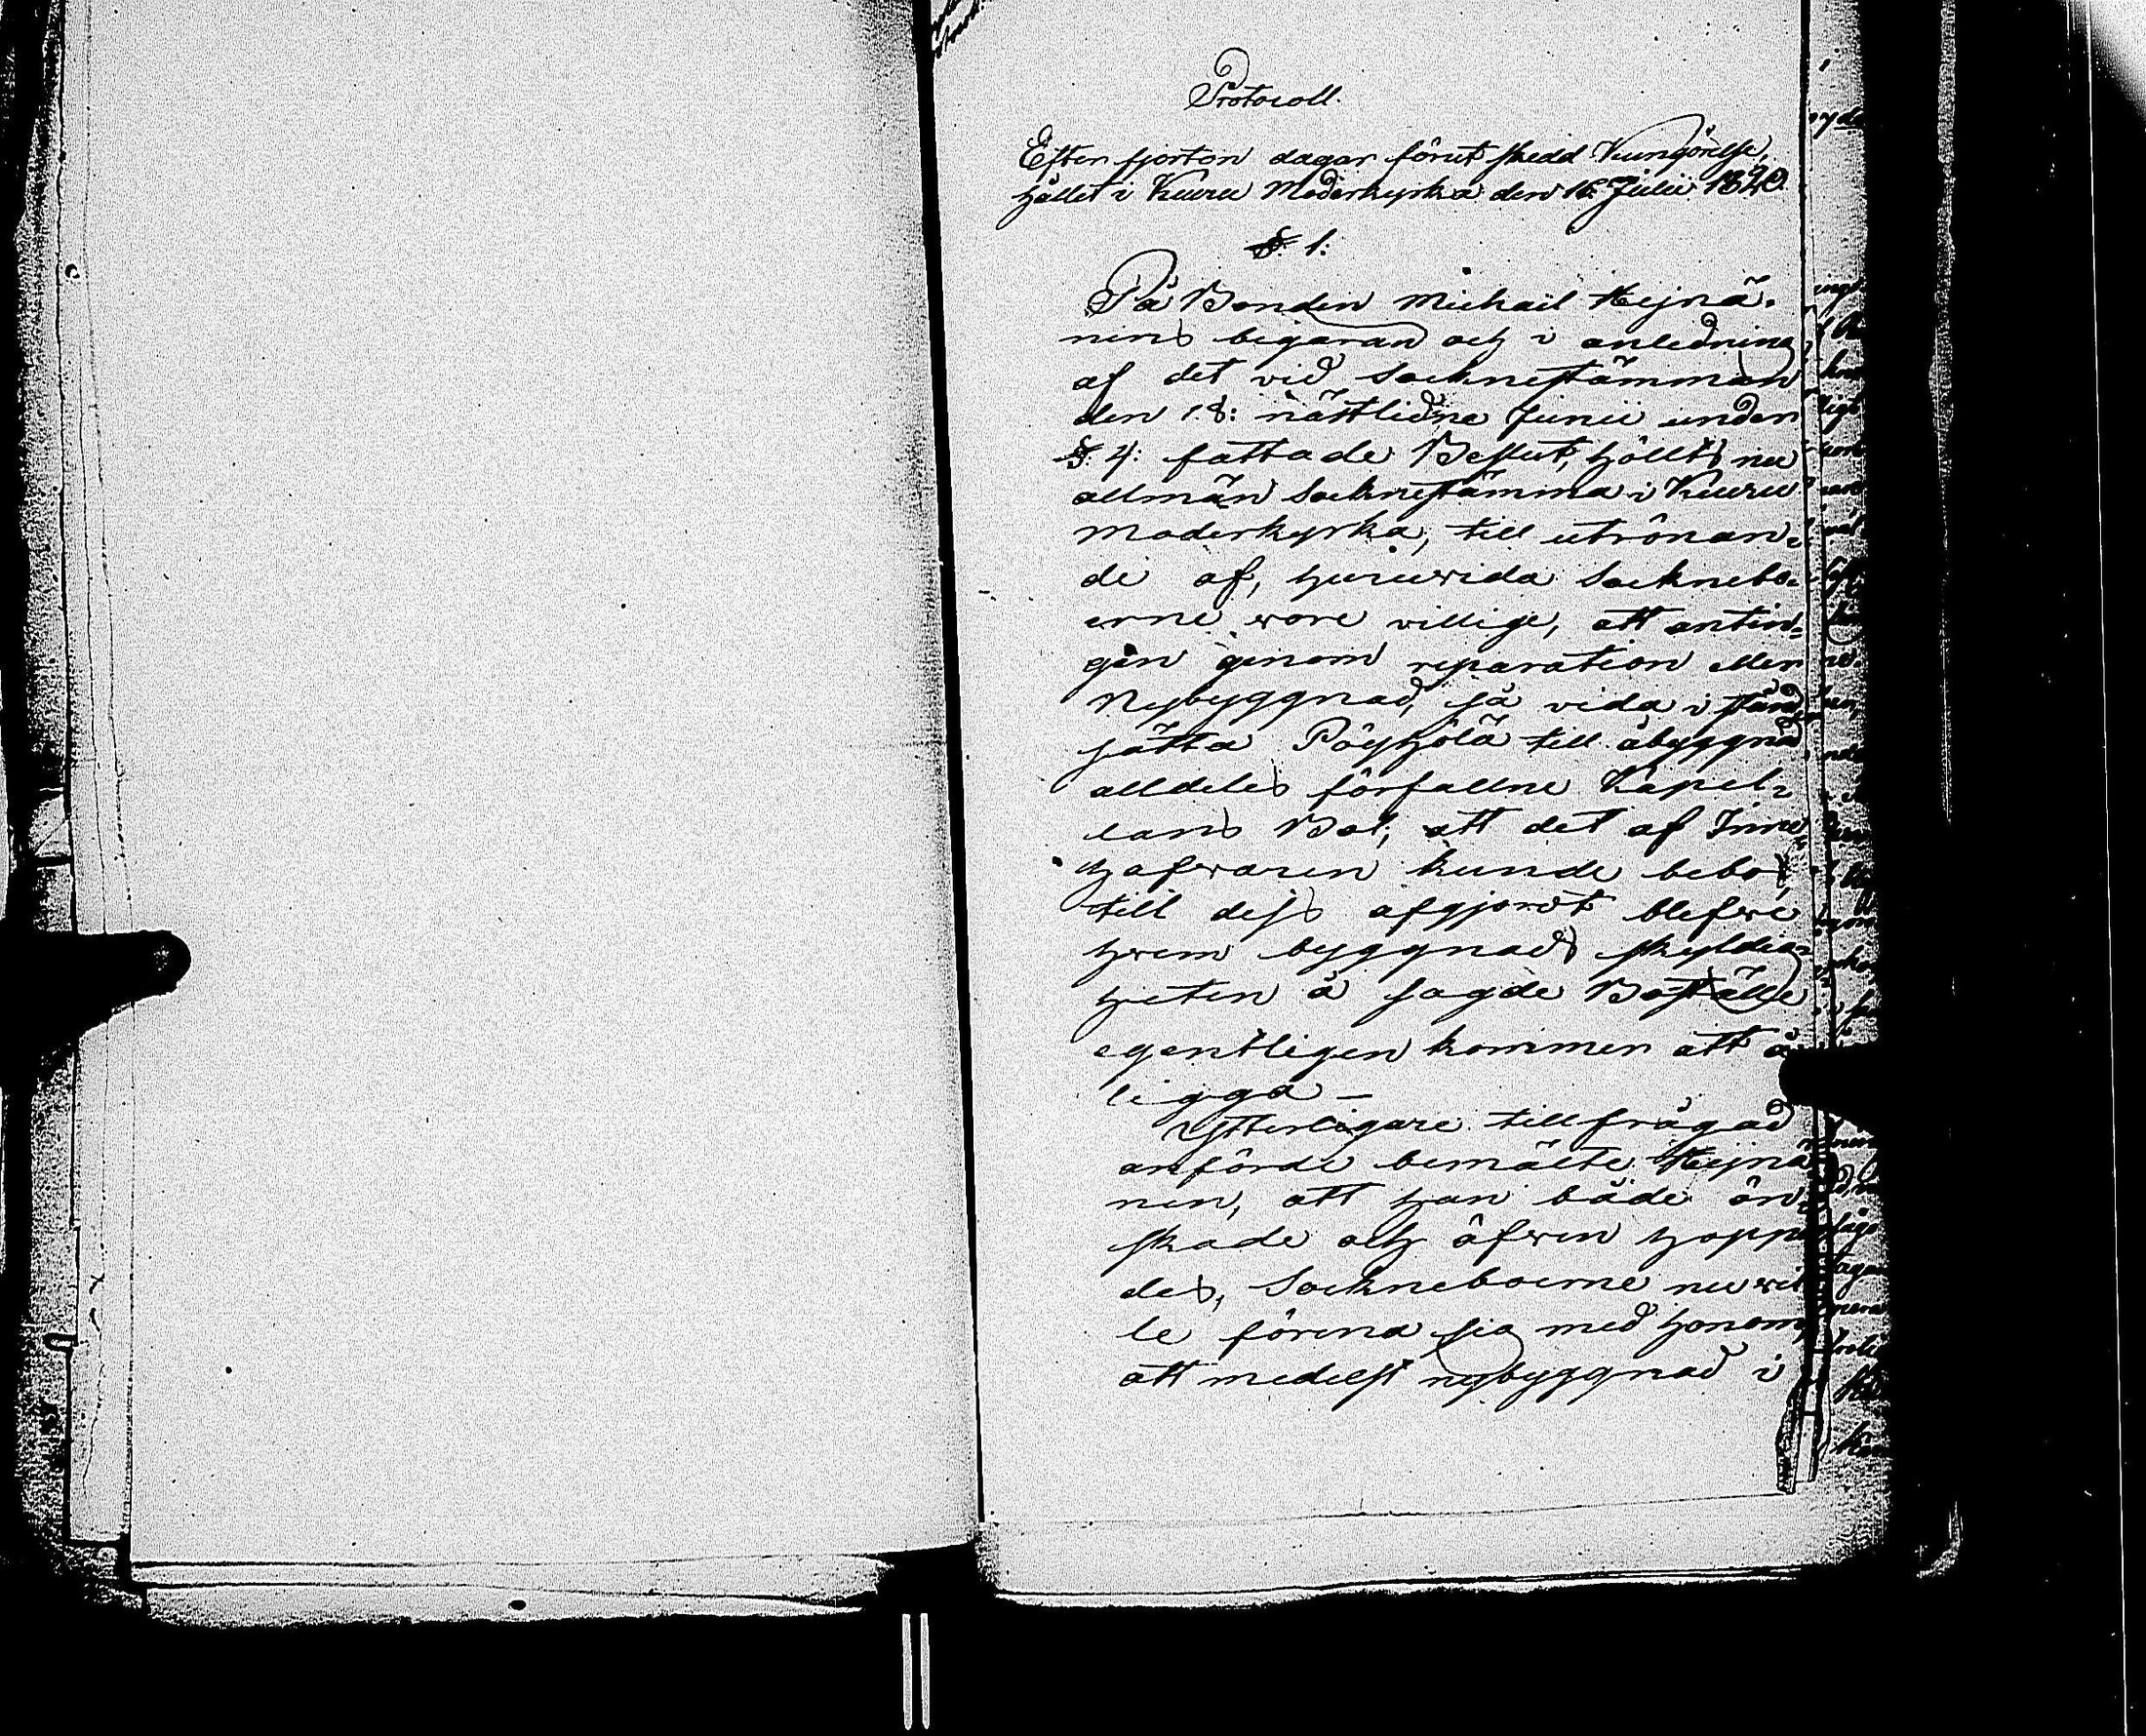 Protocoll.
Efter fjorton dagar förut skedd Kungörelse,
hållet i Kuuru Moderkyrka den 16 Julii 1820.
§. 1:
På Bonden Michaël Hejnä-
nens begäran och i anledning
af det vid Socknestämman
den 18: nästledne Junii under
§. 4: fattade Beslut, hölls nu
allmän Socknestämma i Kuuru
Moderkyrka, till utrönan-
de af, huruvida Sockneboe-
erne wore villige, att antin-
gen genom reparation eller
Nybyggnad, så vida i stånd
sätta Pöyhölä till åbyggnad
alldeles förfallne Kapel-
lans Bol, att det af Inne
hafvaren kunde bebos,
till dess afgjordt blefve
hvem byggnads skyldig-
heten å sagde Boställe
egentligen kommer att å
ligga _
Ytterligare tillfrågad
anförde bemälte Hejnä
nen, att han både ön-
skade och äfven hoppa
des, Sockneboerne nu vil
le förena sig med honom,
att medelst nybyggnad i